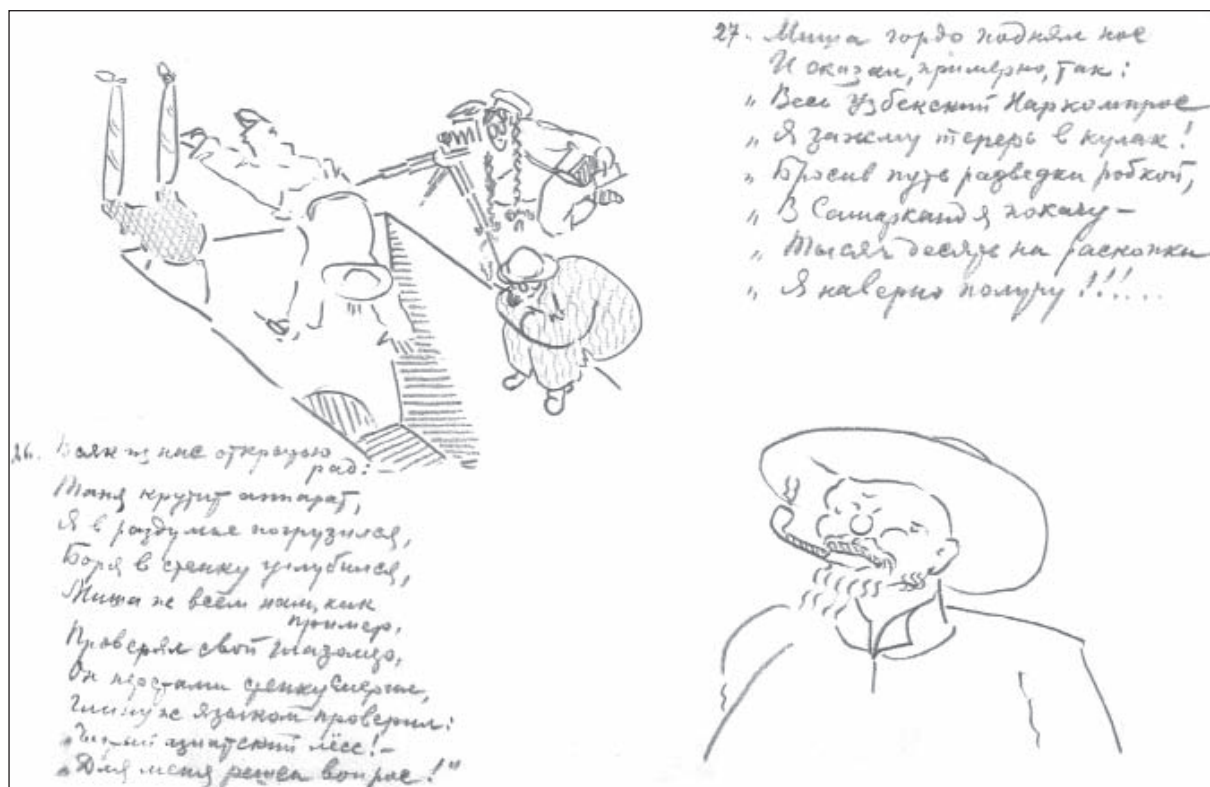 26. Всяк из нас открытью
рад:
Таня крутит аппарат,
Я в раздумье погрузился,
Боря в стенку углубился,
Миша же всем нам, как
пример,
Проверял свой глазомер,
Он перстами стенку смерил,
Глину ж языком проверил:
„Чистый азиатский лёсс! –
„Для меня решен вопрос!"
27. Миша гордо поднял нос
И сказал, примерно, так:
„ Весь Узбекский Наркомпрос
„ Я зажму теперь в кулак!
„ Бросив путь разведки робкой,
„ В Самарканд я покачу –
„ Тысяч десять на раскопки
„ Я наверно получу!!!...